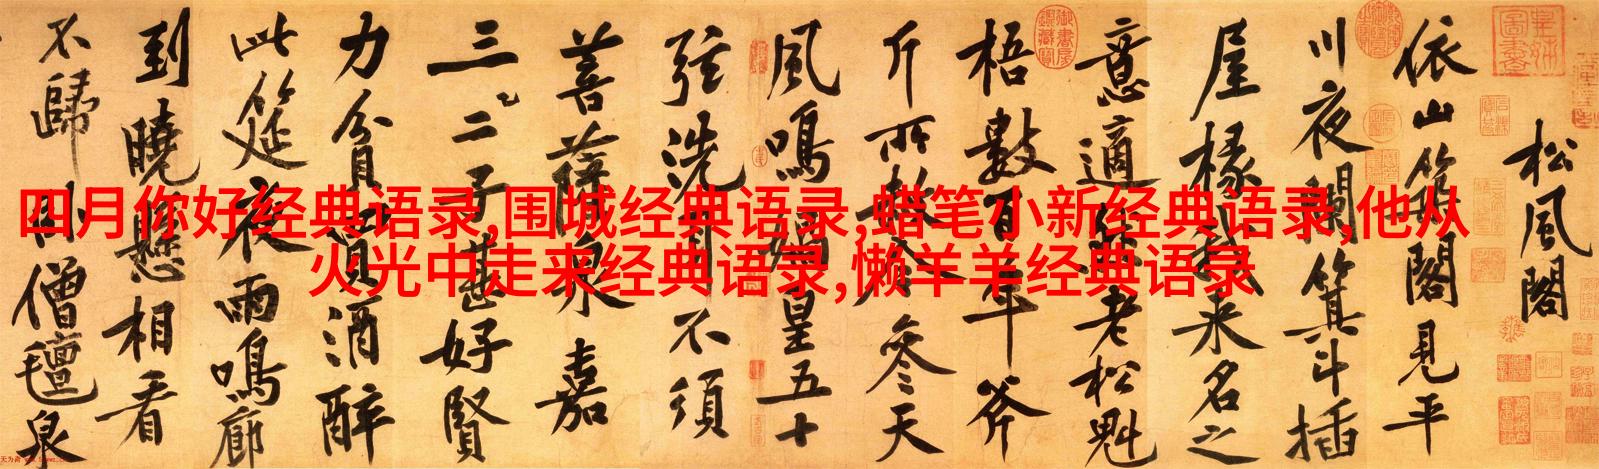 四月你好经典语录,围城经典语录,蜡笔小新经典语录,他从
火光中走来经典语录,懒羊羊经典语录
松風閣
依山築閣見平
川夜闌箕斗插
屋椽我來名之
意適然老松魁
梧數百年斧
斤所赦今參天
風鳴媧皇五十
弦洗耳不須
菩薩泉嘉
三二子甚好賢
力貧買酒醉
此筵夜雨鳴廊
到曉懸相看
不歸臥僧氈泉